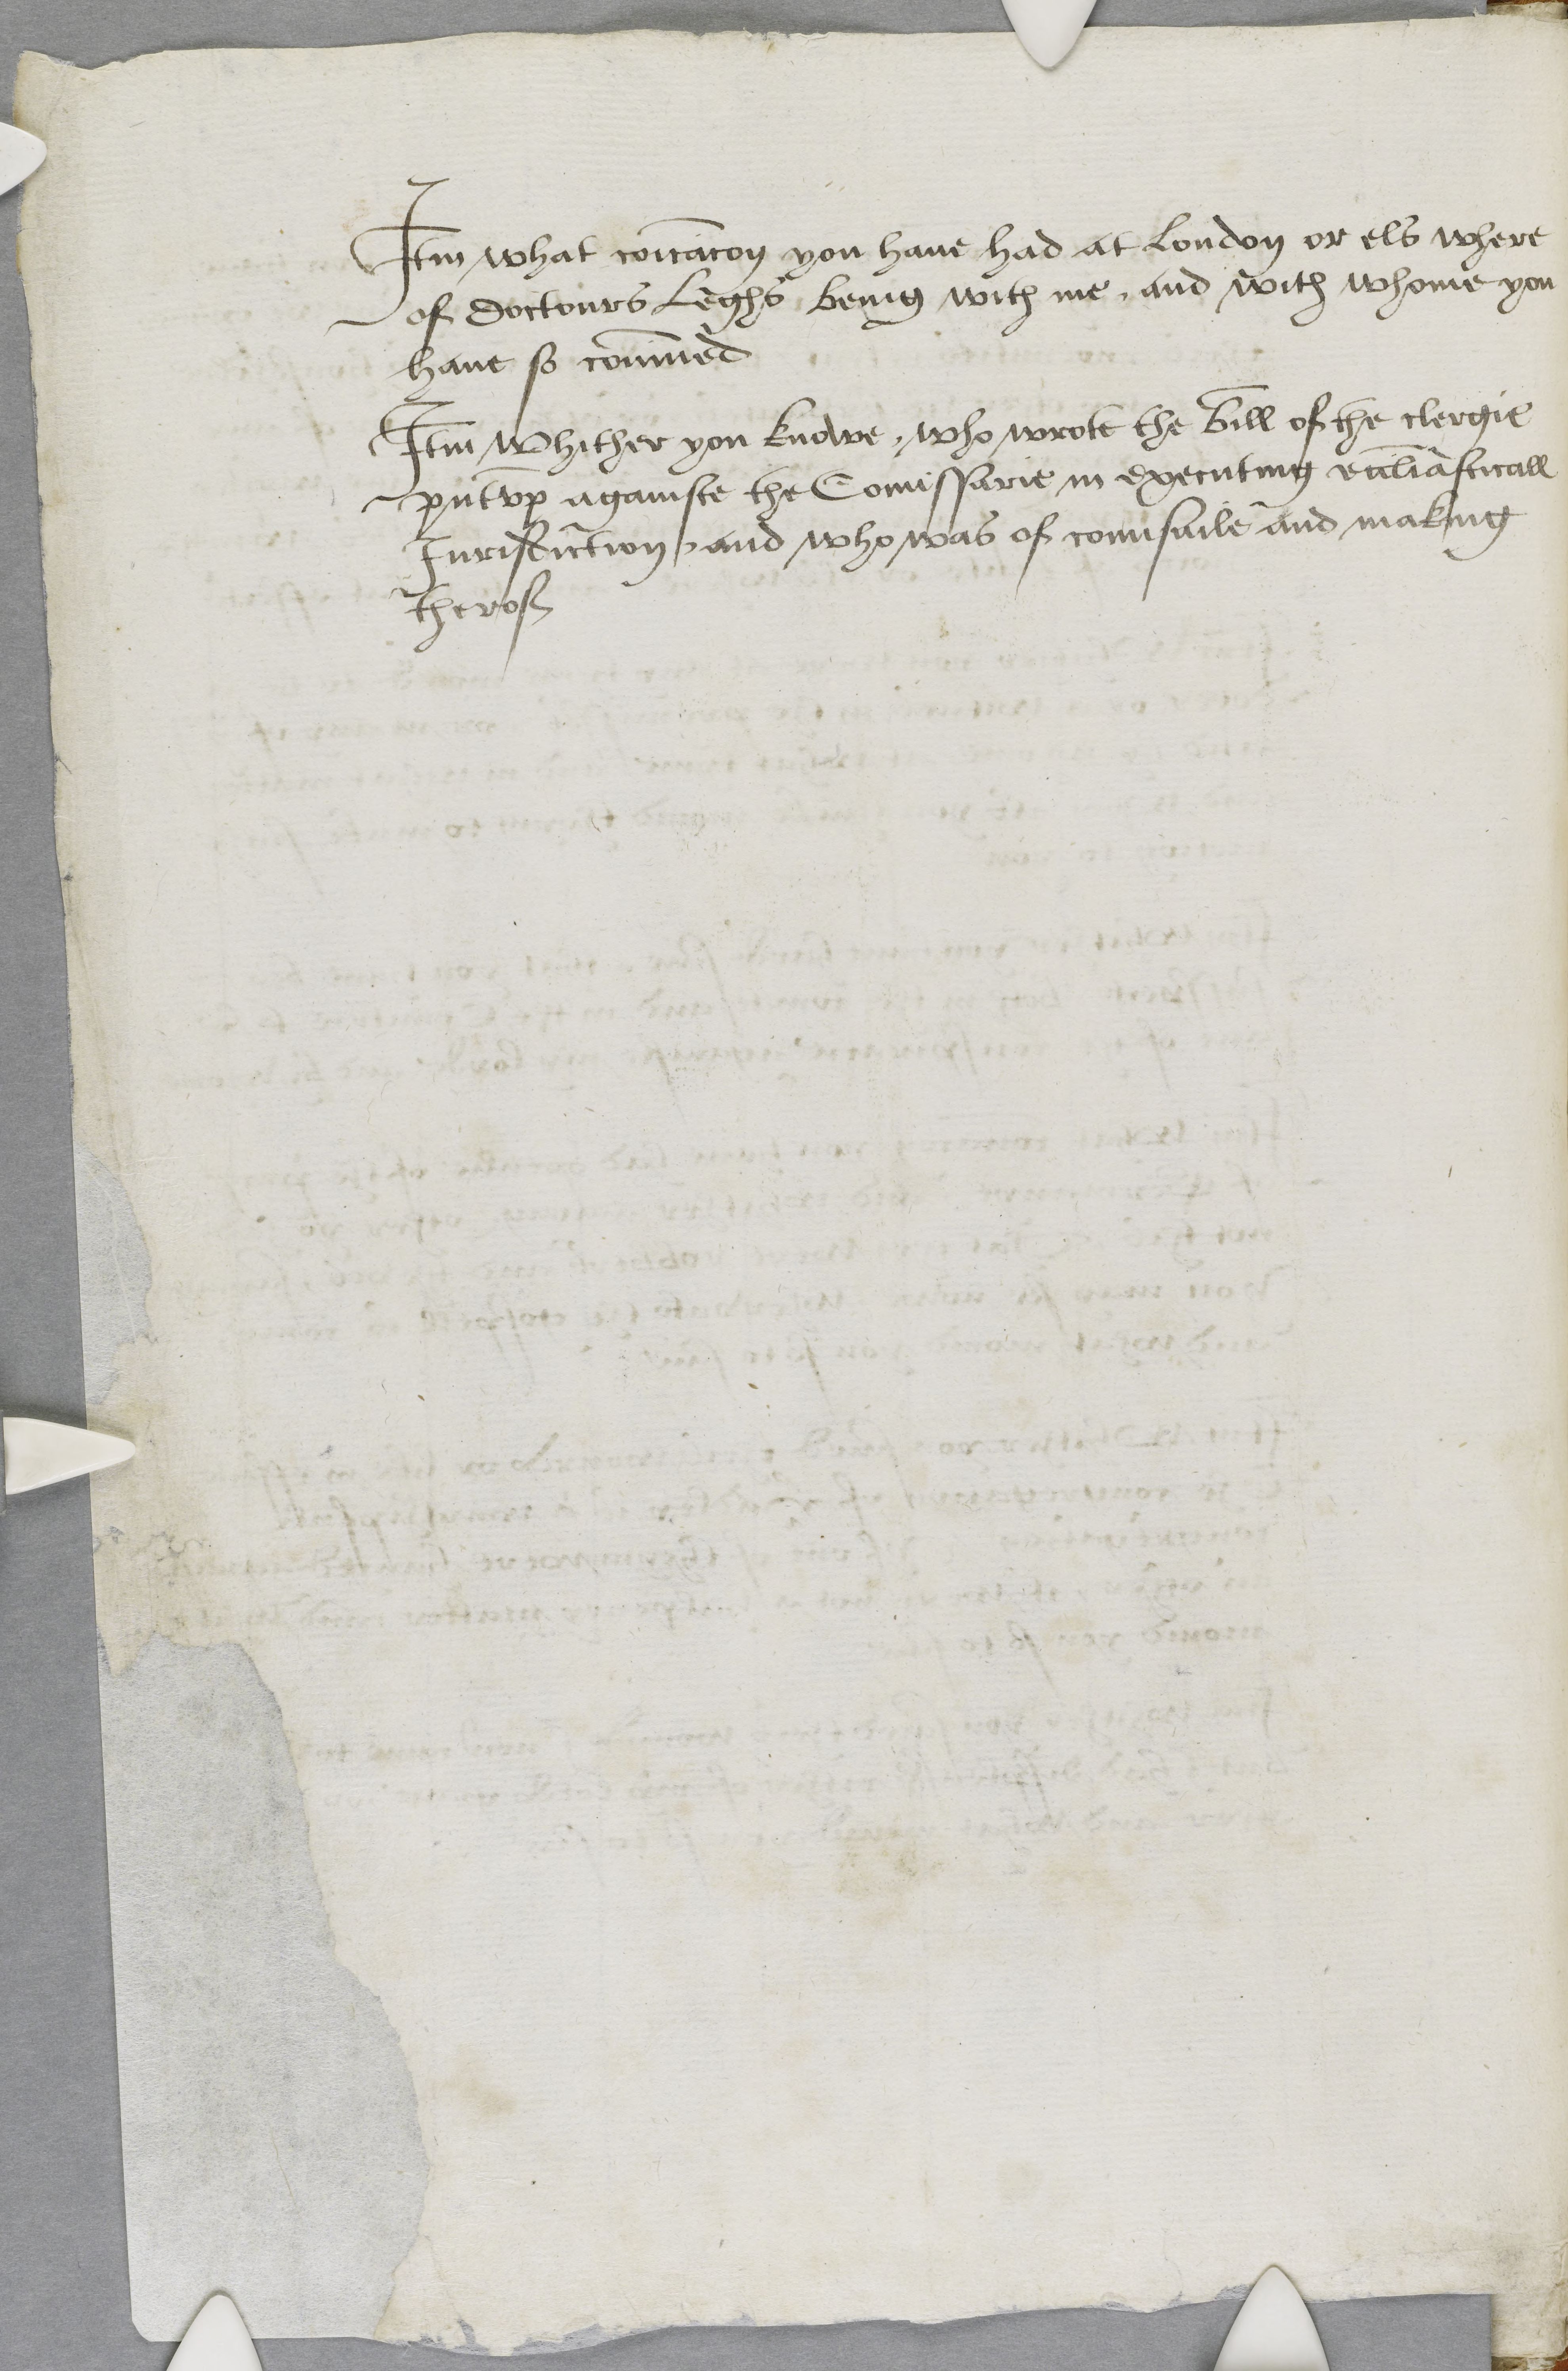 Itm what coicacon you haue had at London or els where
of doctours Leghs being with me, and with whome you
haue so comined
Itm Whither you knowe, who wrote the bill of the clergie
put vp againste the Comissarie in executing eccliasticall
Iurisdiction, and who was of counsaile and making
therof